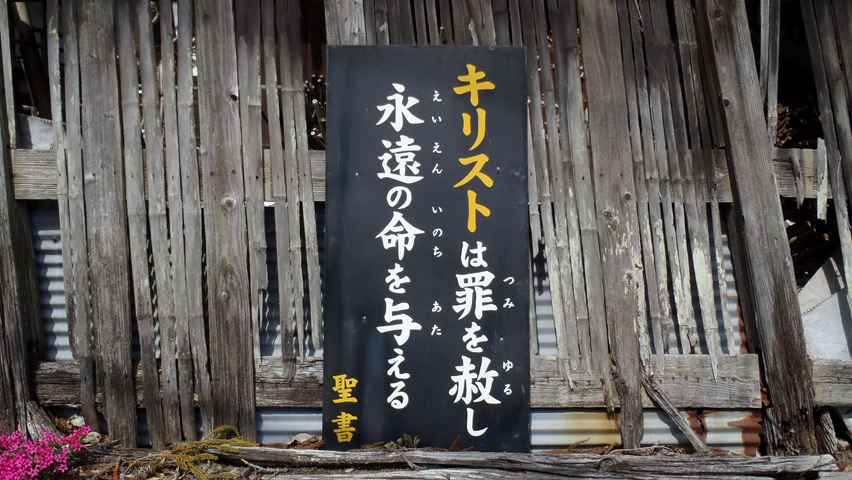 キリストは罪を赦し
つみ
ゆる
永遠の命を与える
えいえん
いのち
あた
聖書